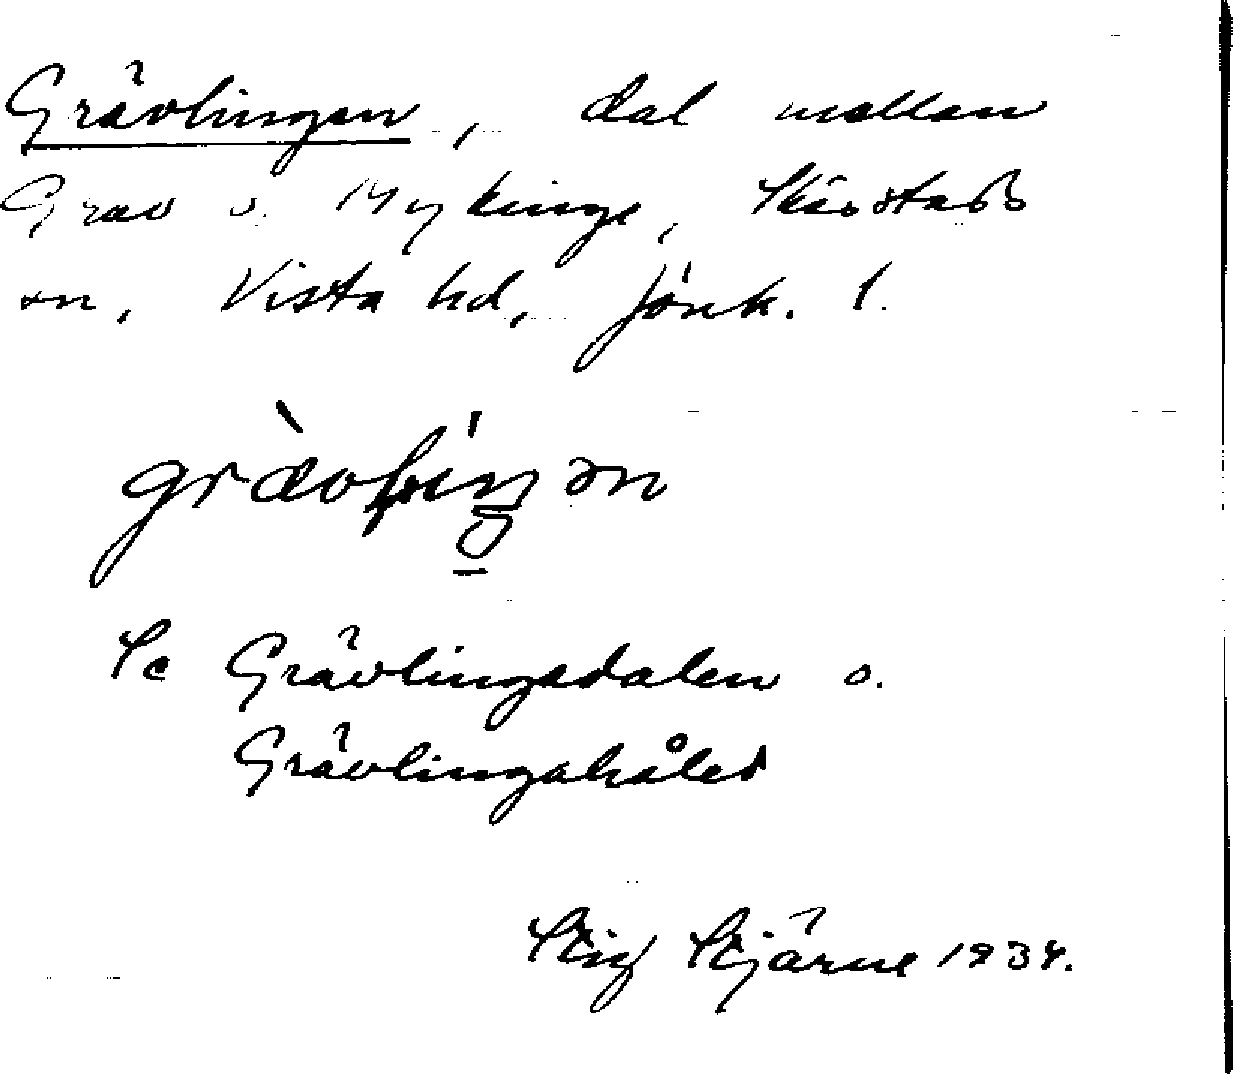 Grävlingen, dal mellan
Grav o. Mykinge, Skärstads
sn, Vista hd, Jönk. l.
Se Grävlingsdalen o.
Grävlingahålet
Stig Stjärne 1934.